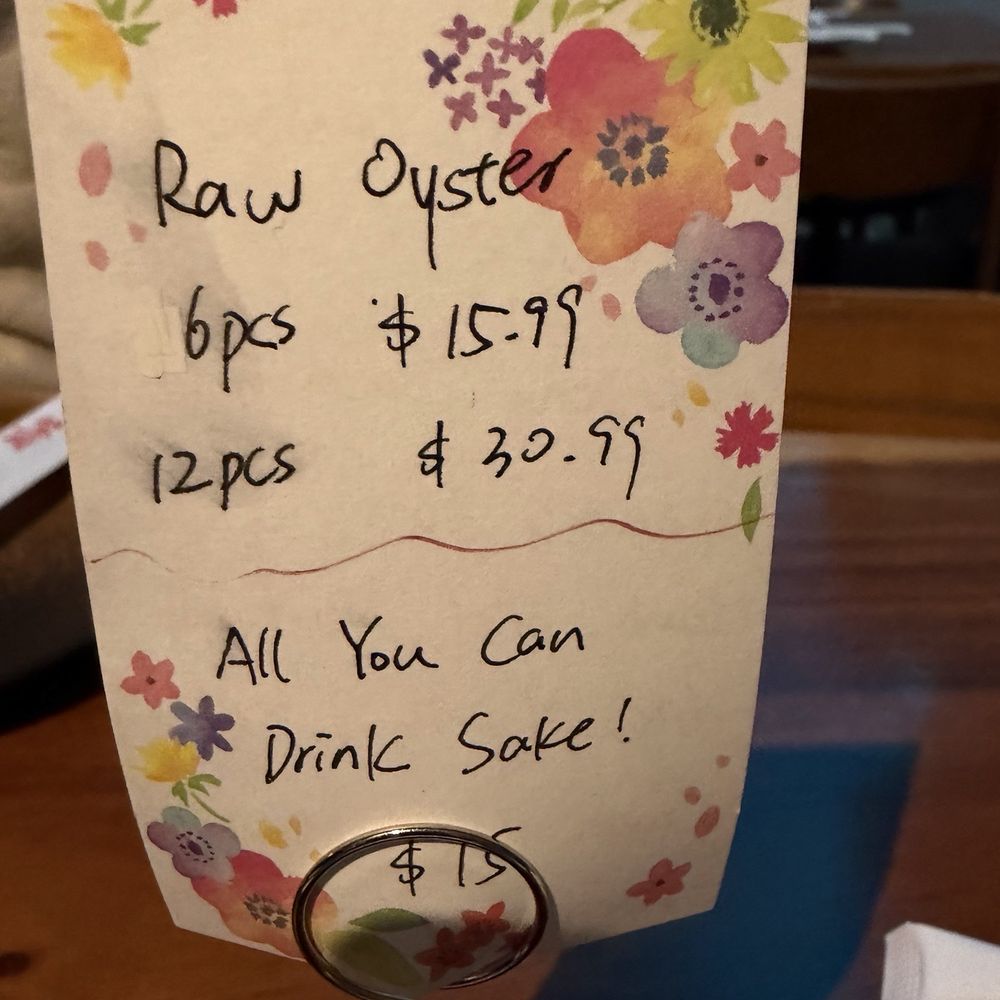 Raw Oyster
6pcs $15.99
12pcs $30.99
All You Can
Drink Sake!
$15